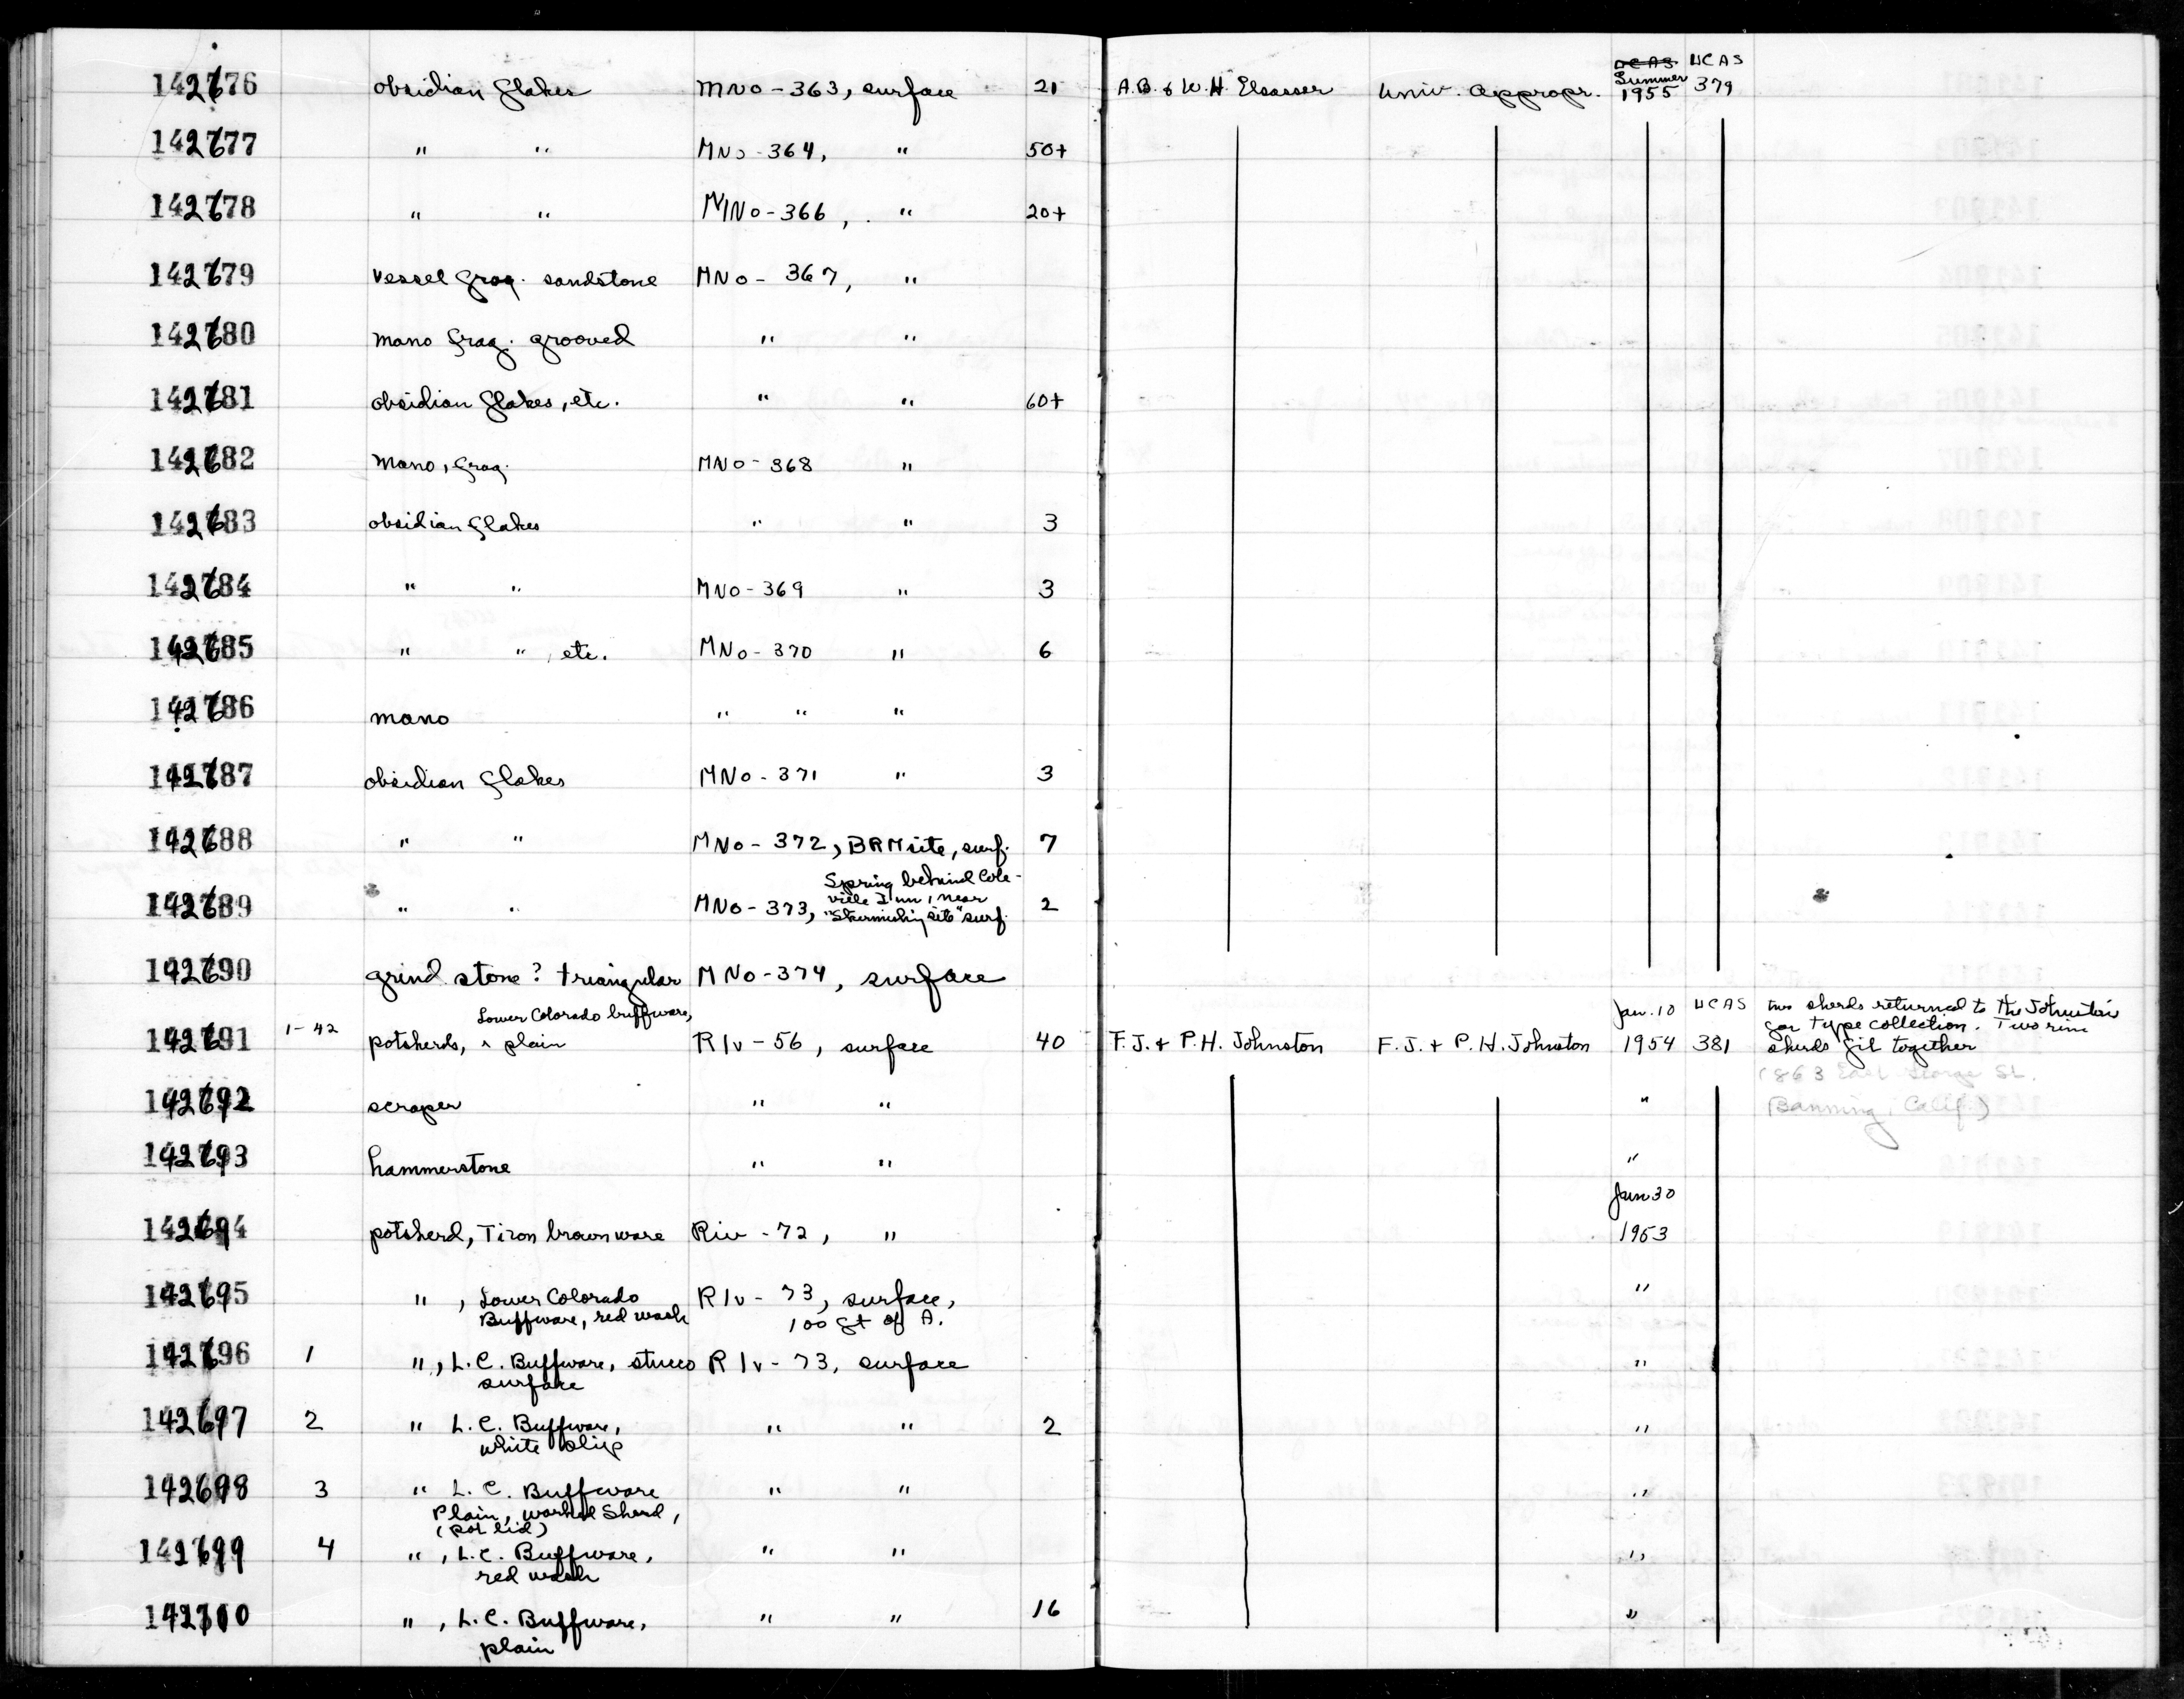 142676 obsidian flakes MNo-363, surface 21 A.B. & W.H. Elsasser Univ. Appropr. UCAS Summer 1955 UCAS 379
142677 " " MNo-364, " 50+
142678 " " MNo-366, " 20+
142679 vessel frag. sandstone MNo-367, "
142680 mano frag. grooved " "
142681 obsidian flakes, etc. " " 60+
142682 mano, frag. MNo-368 "
142683 obsidian flakes " " 3
142684 " " MNo-369 " 3
142685 " ", etc. MNo-370 " 6
142686 mano " " "
142687 obsidian flakes MNo-371 " 3
142688 " " MNo-372, BRM site, surf. 7
142689 " " MNo-373, Spring behind Cole-
ville Inn, near
"Skirmishing site" surf. 2
142690 grind stone? triangular MNo-374, surface
142691 1-42 potsherds, Lower Colorado buffware, plain RIv-56, surface 40 F.J. + P.H. Johnston F.J. + P.H. Johnston Jan. 10 1954 UCAS 381 two sherds returned to the Johnstons
for type collection. Two rim
sherds fit together
(863 East George St.
Banning, Calif.)
142692 scraper " " "
142693 hammerstone " " "
142694 potsherd, Tizon brownware Riv-72, " Jan 30
1953
142695 ", Lower Colorado
Buffware, red wash RIv-73, surface,
100 ft of A. "
142696 1 ", L.C. Buffware, stucco
surface RIv-73, surface "
142697 2 " L.C. Buffware,
white slip " " 2 "
142698 3 " L.C. Buffware
Plain, worked Sherd,
(pot lid) " " "
142699 4 ", L.C. Buffware,
red wash " " "
142700 ", L.C. Buffware,
plain " " 16 "